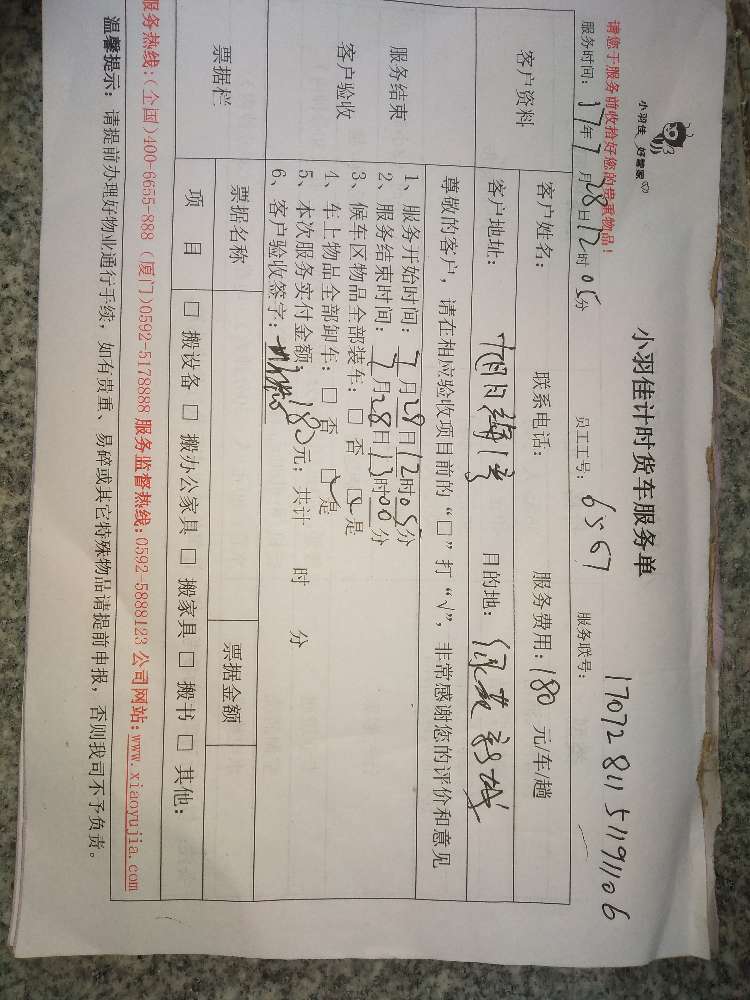 小羽佳 好管家
小羽佳计时货车服务单
1707281151191106
请您于服务前收拾好您的贵重物品！
服务时间：17年7月28日12时05分 员工工号：6567 服务联号：
客户资料
客户姓名： 联系电话： 服务费用：180 元/车/趟
客户地址： 目的地：
服务结束
客户验收
尊敬的客户，请在相应验收项目前的“□”打“√”，非常感谢您的评价和意见
1、服务开始时间：7月28日12时05分
2、服务结束时间：7月28日13时00分
3、候车区物品全部装车：□ 否 ☑ 是
4、车上物品全部卸车：□ 否 ☑ 是
5、本次服务实付金额：180元；共计 时 分
6、客户验收签字：
票据栏
票据名称 票据金额
项 目 □ 搬设备 □ 搬办公家具 □ 搬家具 □ 搬书 □ 其他：
服务热线:(全国)400-6655-888 (厦门)0592-5178888 服务监督热线:0592-5888123 公司网站:www.xiaoyujia.com
温馨提示：请提前办理好物业通行手续，如有贵重、易碎或其它特殊物品请提前申报，否则我司不予负责。